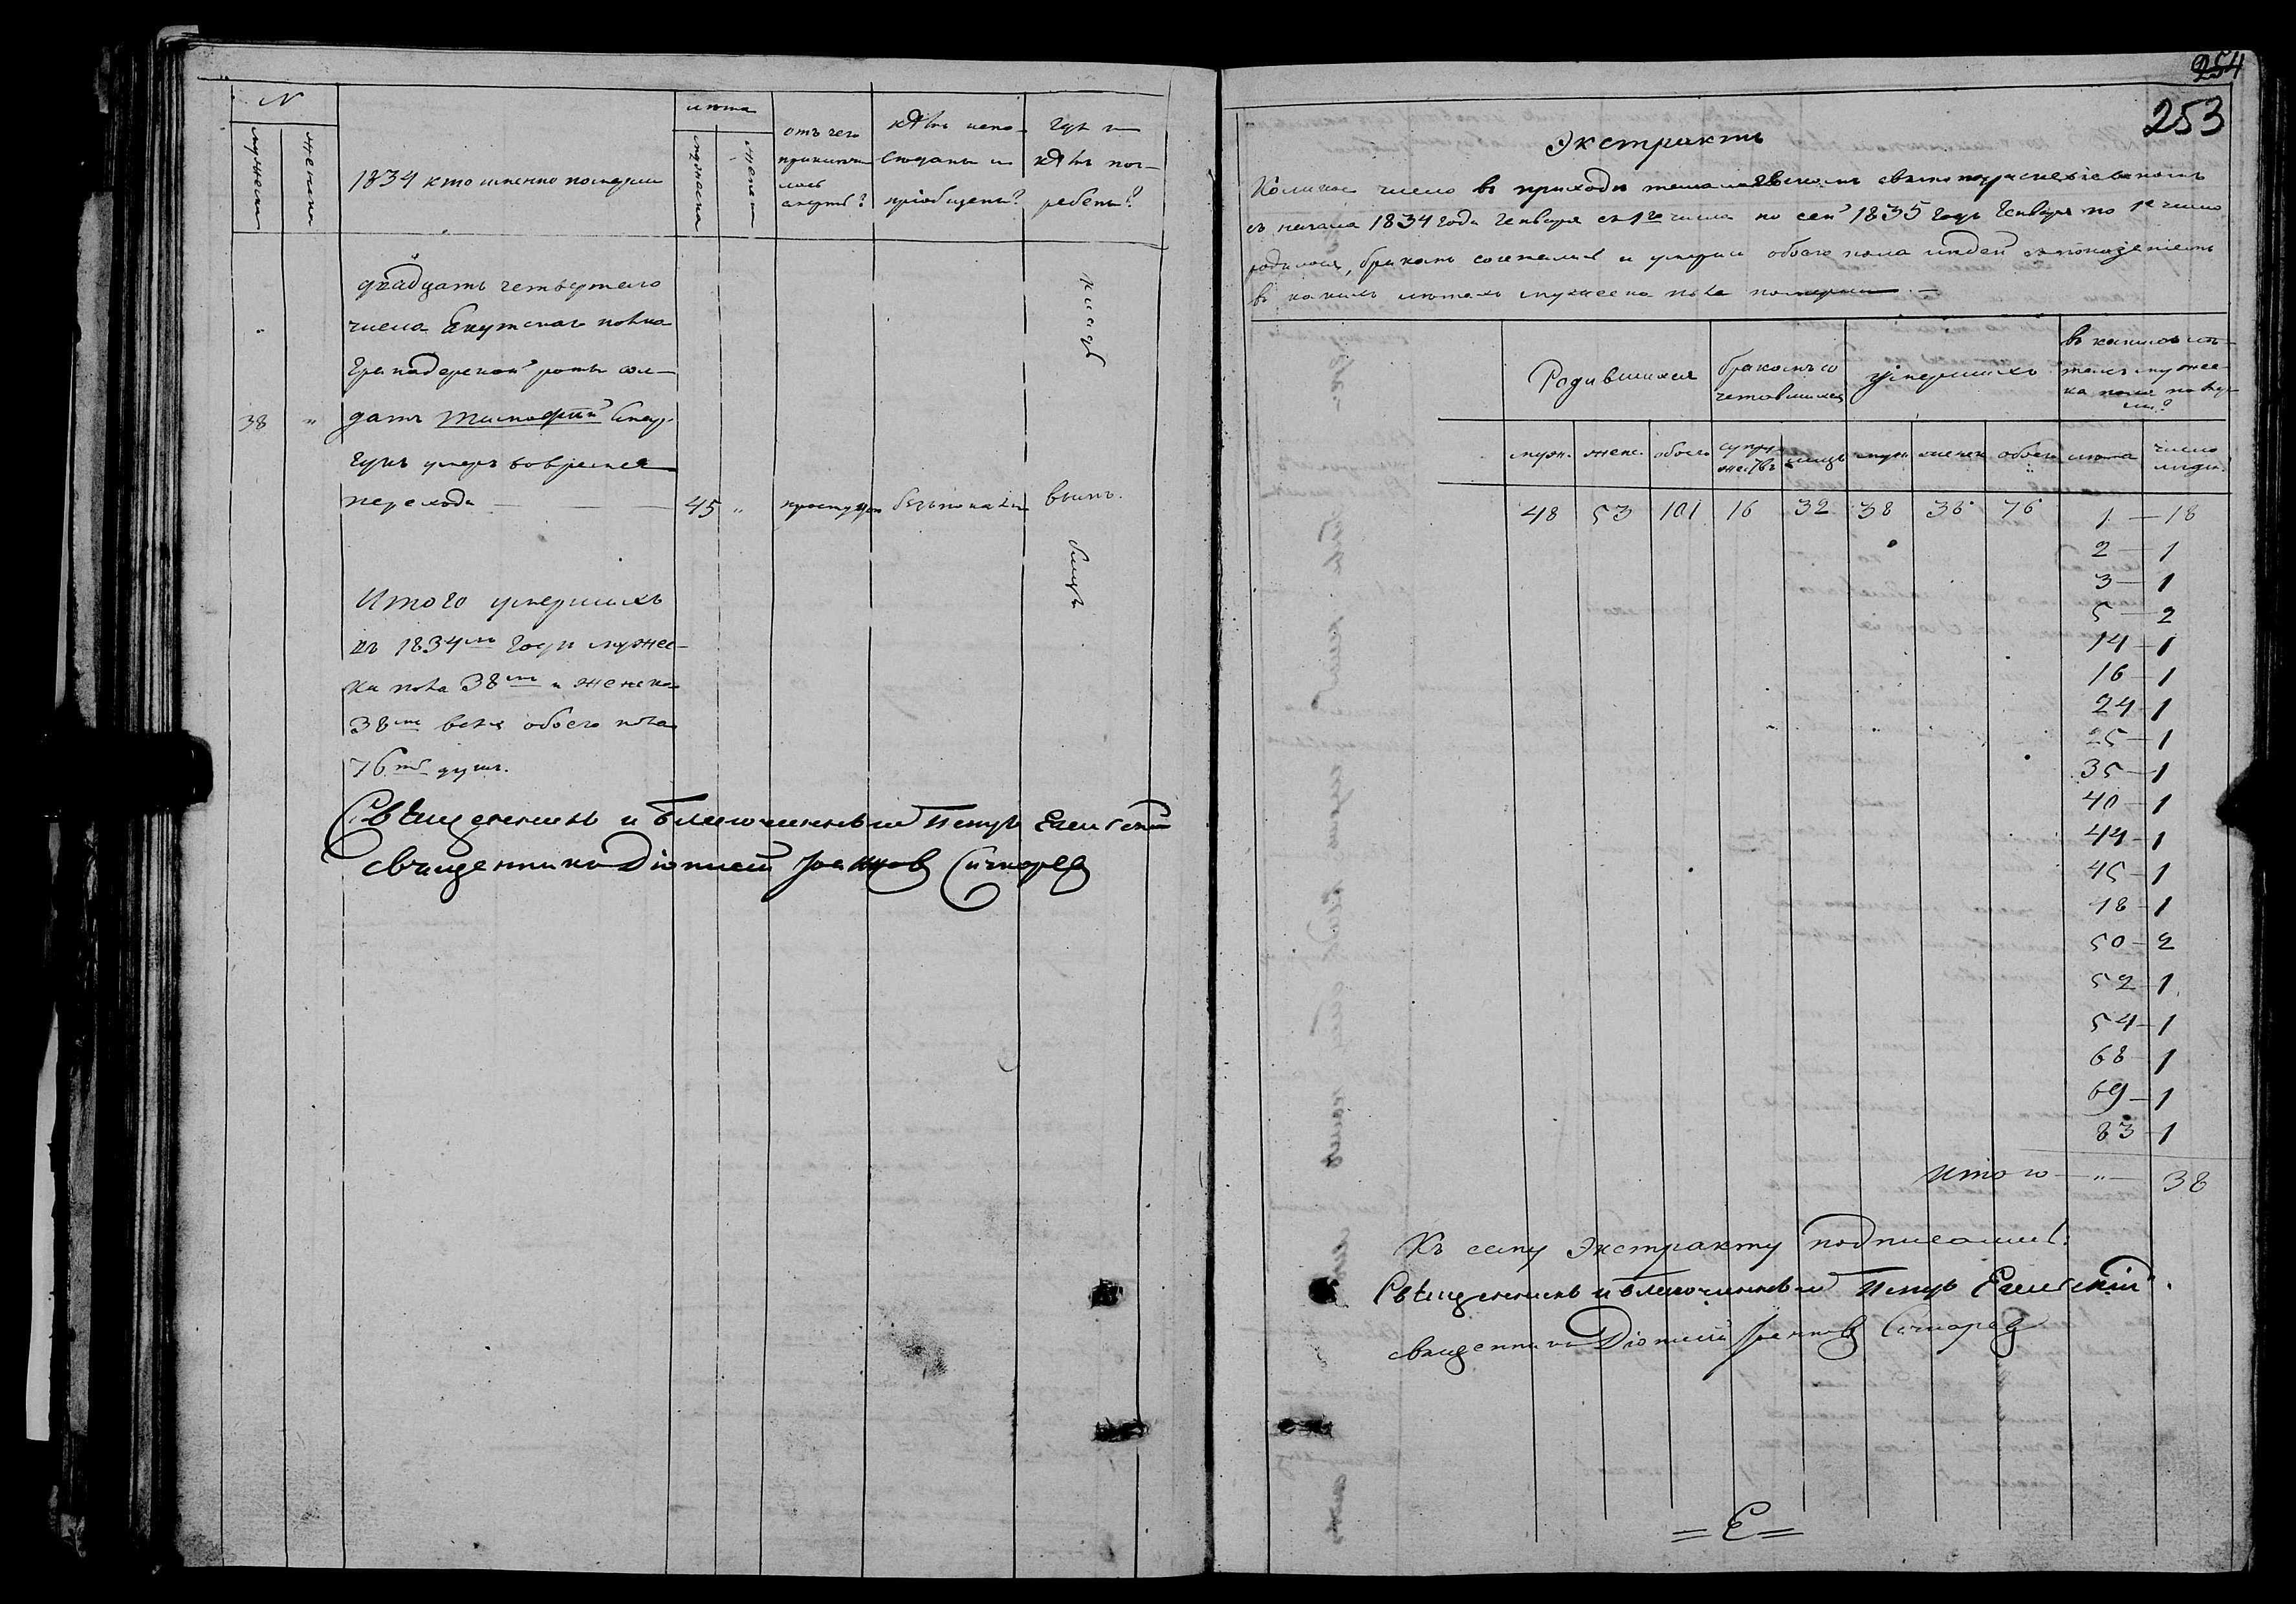 N
мужеска
женска
1834 кто именно померли
лета
мужеска
женска
отъ чего приключилась смерть?
кѣмъ исповеданы и пріобщены?
где и кѣмъ погребены?
двадцать четвертаго
числа Якутскаго полка
Гренадерской роты сол-
датъ Тимофей
умеръ вовремя
перехода
38 "
45 "
простуды
безъ покаянія
Итого умершихъ
въ 1834мъ году мужес-
ка пола 38мь и женска
38мь всехъ обоего пола
76ть душъ.
Священникъ и благочинный Петръ
священникъ Діонисій
254
253
Экстрактъ
Коликое число въ приходе
съ начала 1834 года Генваря съ 1го числа по сей 1835 годъ Генваря по 1е число
родилось, бракомъ сочетались и умерли обоего пола людей съ показаніемъ
въ какихъ летахъ мужеска пола померли
Родившихся
бракомъ со четавшихся
умершихъ
въ какихъ ле-
тахъ мужес-
ка пола
муж. женс. обоего супружествъ лицъ муж. женск обоего лета число людей
48 53 101 16 32 38 38 76 1 — 18
2 — 1
3 — 1
5 — 2
14 — 1
16 — 1
24 — 1
25 — 1
35 — 1
40 — 1
44 — 1
45 — 1
48 — 1
50 — 2
52 — 1
54 — 1
68 — 1
69 — 1
83 — 1
Итого — " — 38
Къ сему Экстракту подписались:
Священникъ и благочинный Петръ
священникъ Діонисій
= Е =